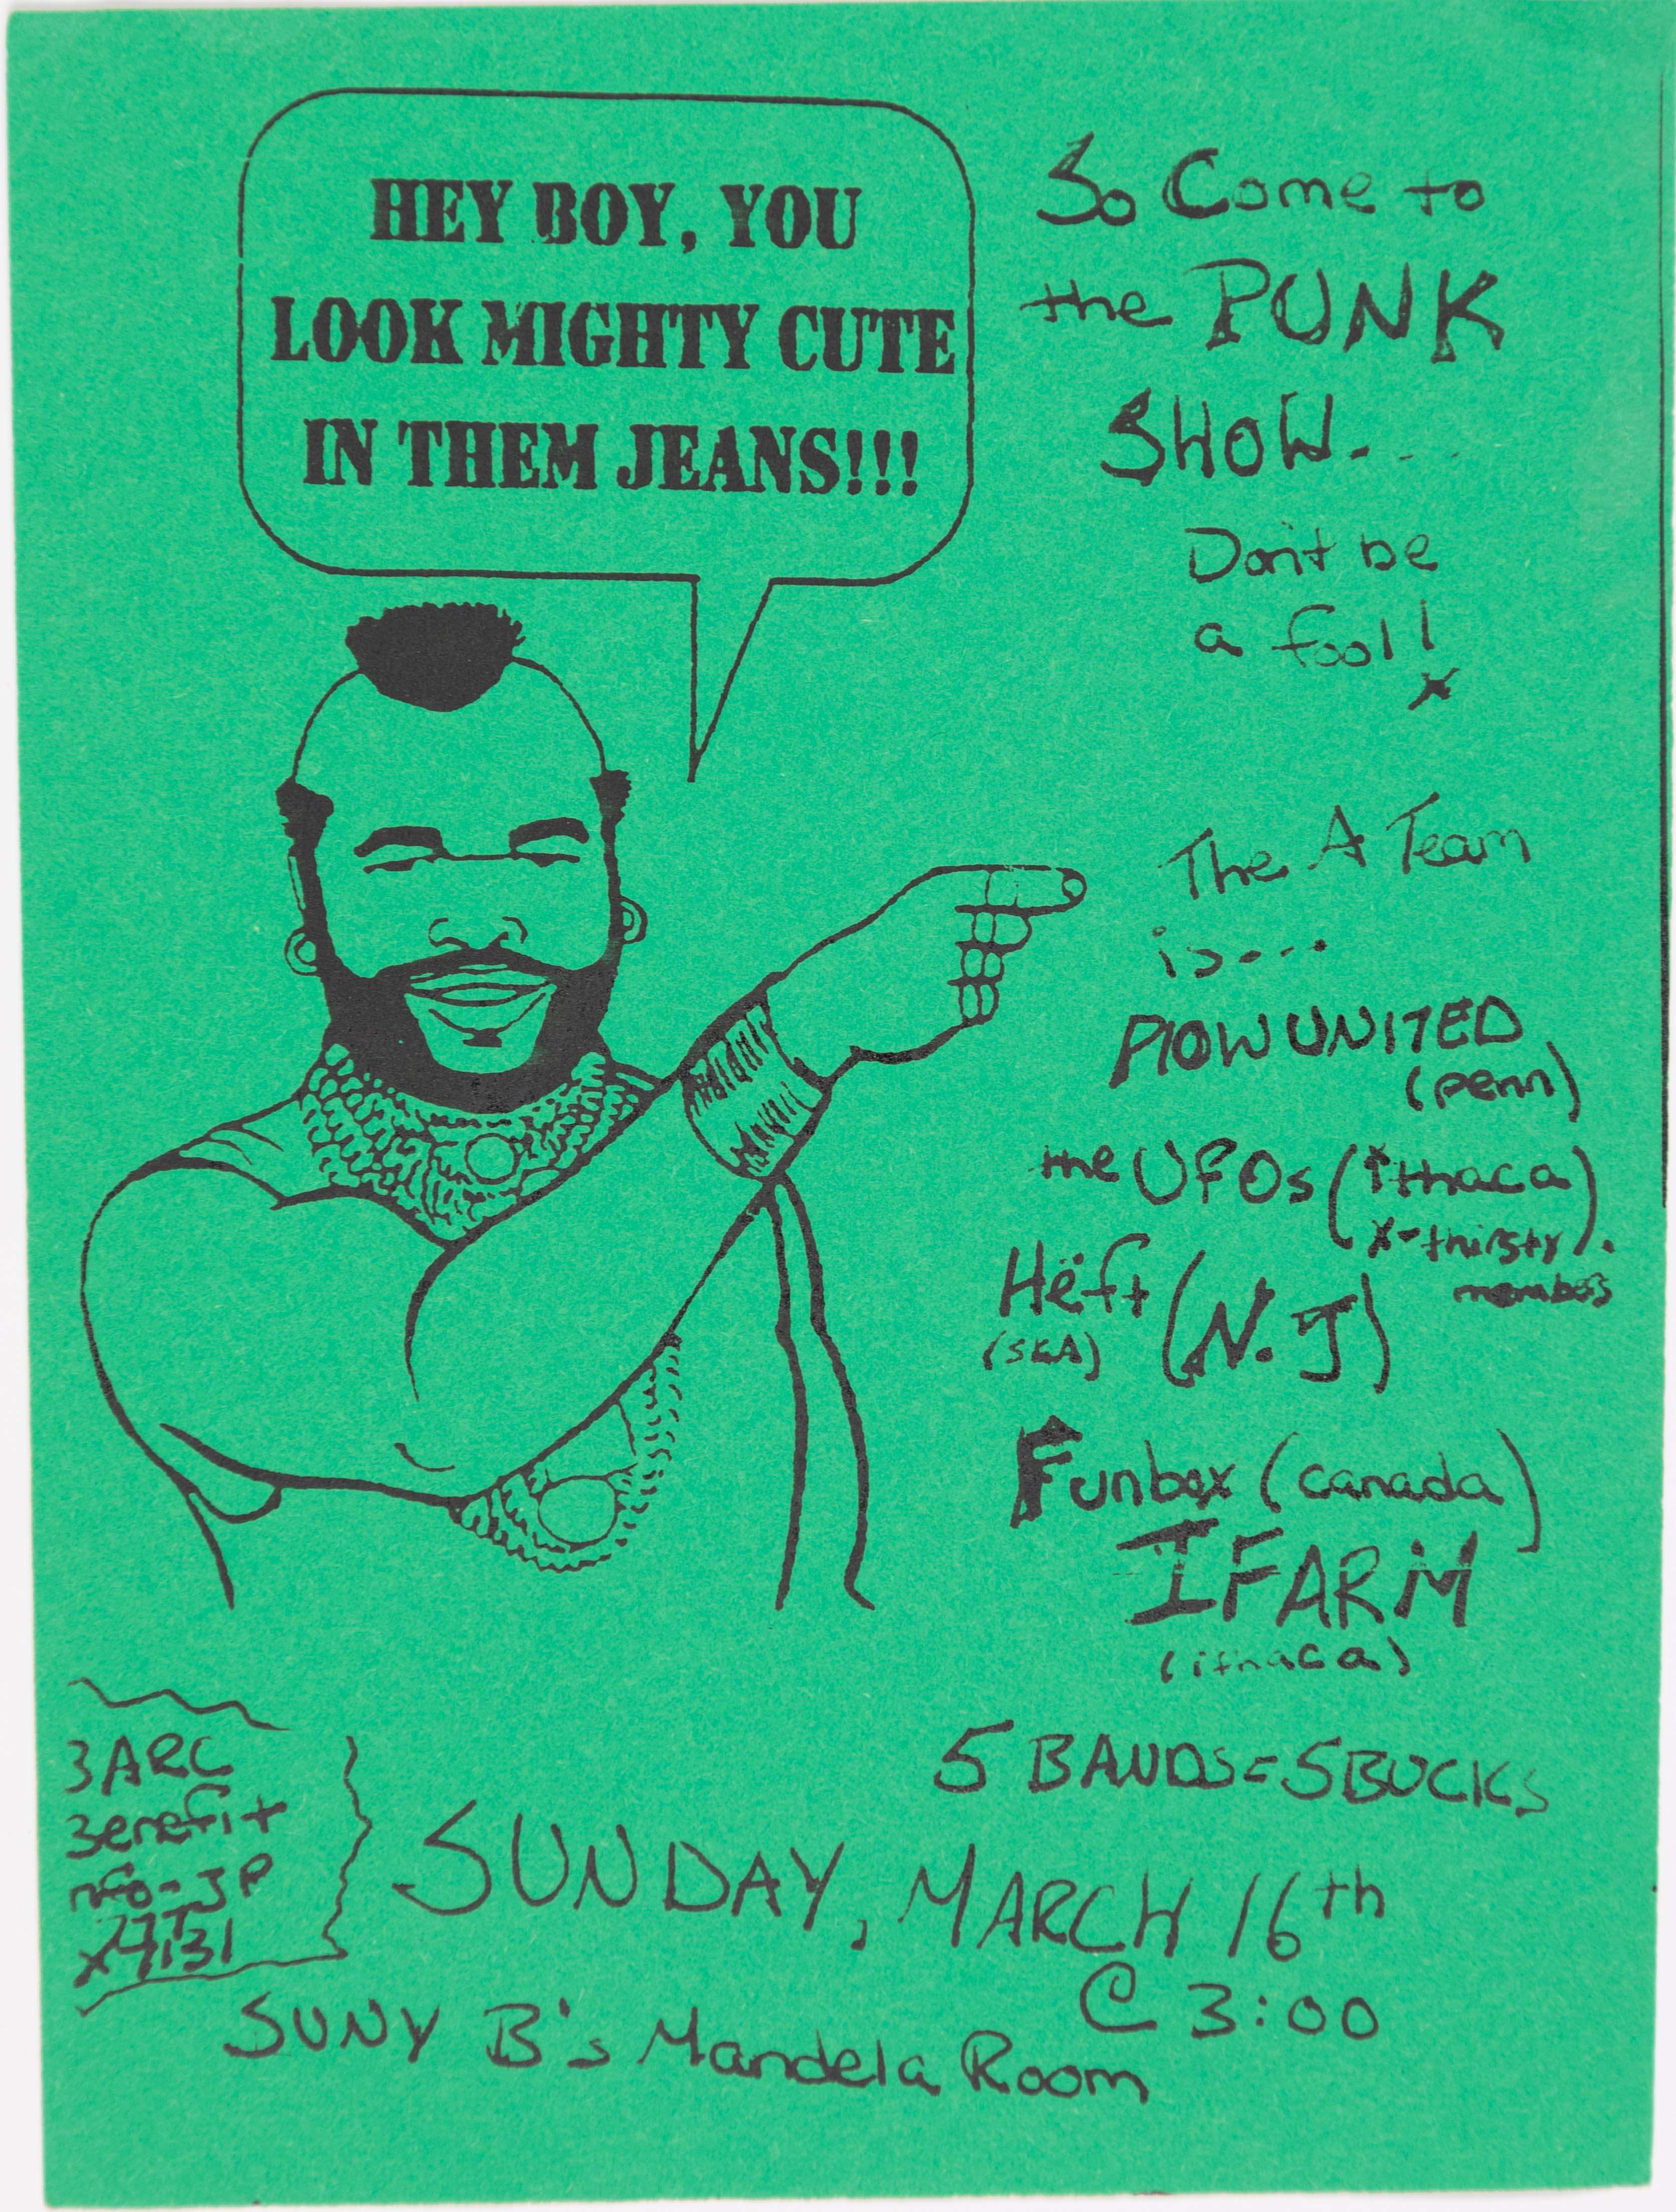 HEY BOY, YOU
LOOK MIGHTY CUTE
IN THEM JEANS!!!
So Come to
the PUNK
SHOW....
Don't be
a fool!
The A Team
is...
PlOW UNITED
(penn)
the UFOs (ithaca)
x-thirsty
members
Hëft (N.J)
(SKA)
Funbox (canada)
I FARM
(ithaca)
5 BANDS = 5 BUCKS
3ARC
Benefit
nfo- JP
SUNDAY, MARCH 16th
@ 3:00
SUNY B's Mandela Room